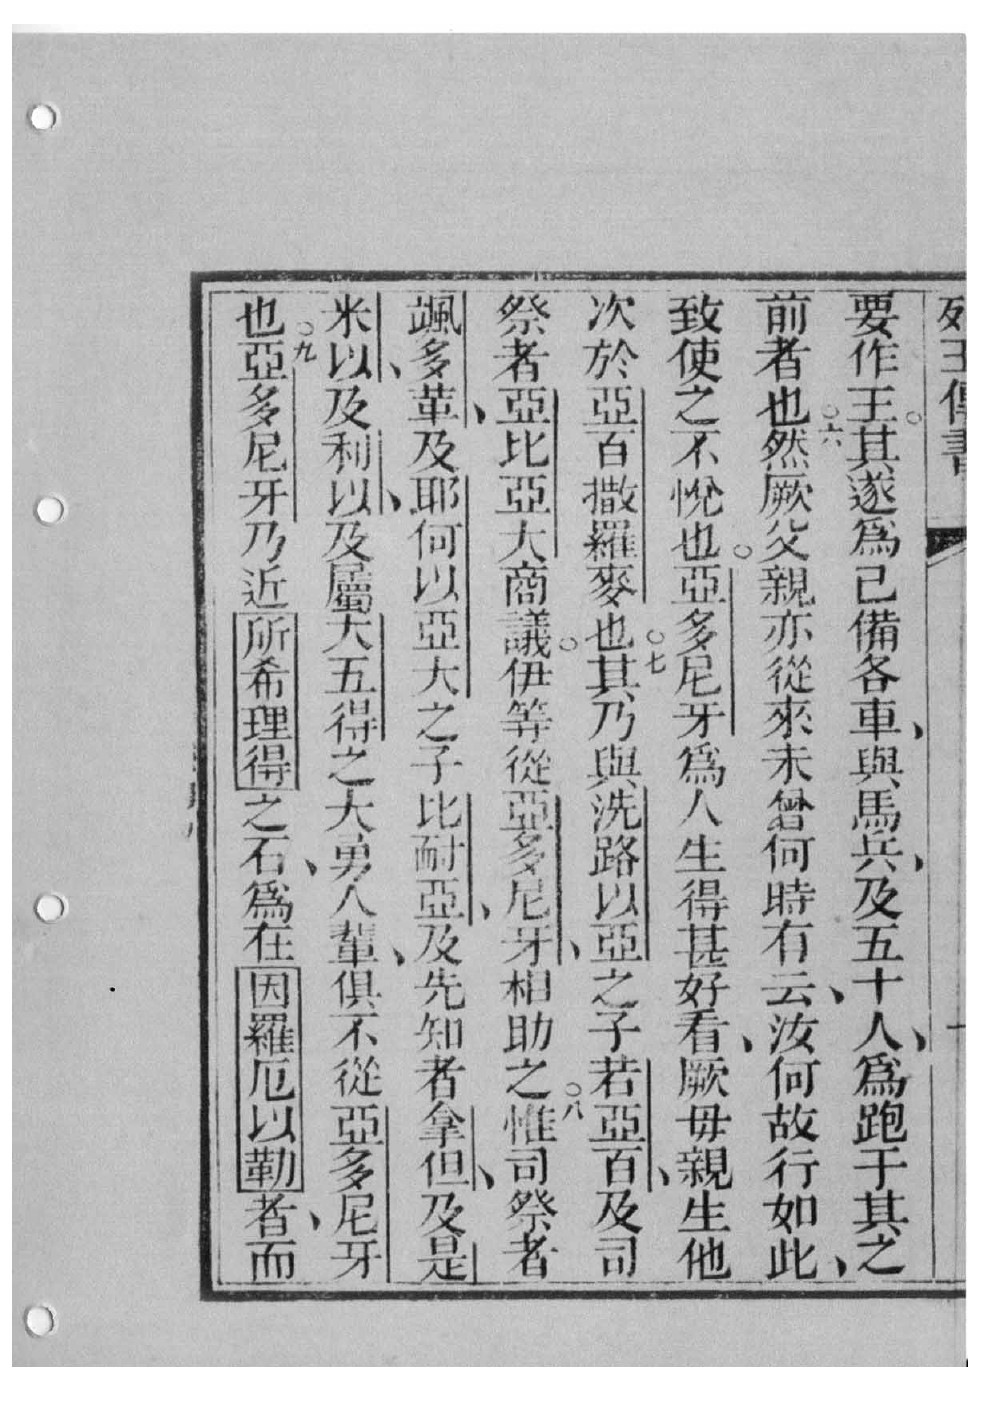 列王傳書
要作王。其遂為己備各車、與馬兵、及五十人、為跑于其之
前者也○六然厥父親亦從來未曾何時有云、汝何故行如此、
致使之不悅也。亞多尼牙為人生得甚好看、厥毋親生他
次於亞百撒羅麥也○七其乃與洗路以亞之子若亞百、及司
祭者亞比亞大商議。伊等從亞多尼牙、相助之○八惟司祭者
颯多革、及耶何以亞大之子比耐亞、及先知者拿但、及是
米以、及利以、及屬大五得之大勇人輩、俱不從亞多尼牙
也○九亞多尼牙乃近所希理得之石、為在因羅厄以勒者、而